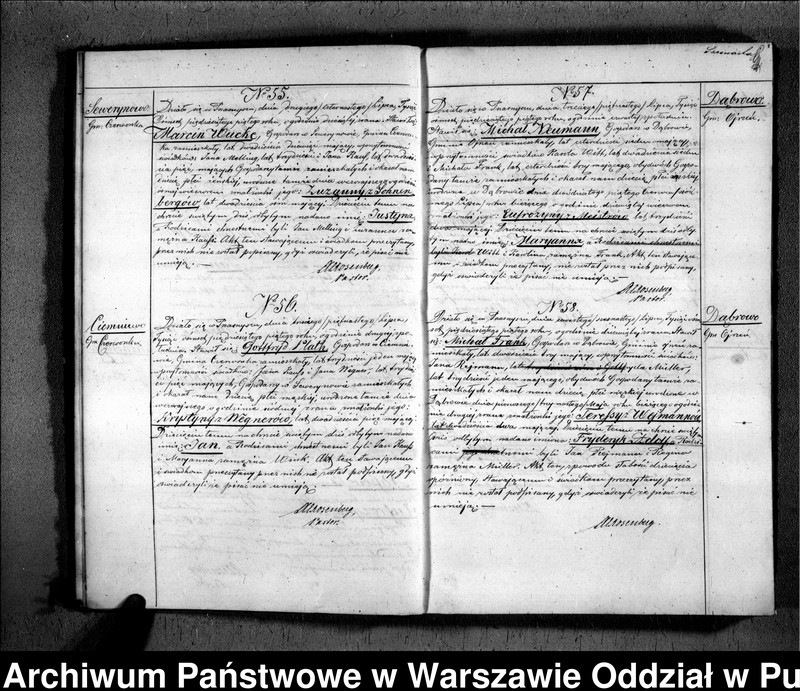 Sewerynowo
Gm: Czerwonka
No 55.
Działo się w Przasnyszu, dnia drugiego/czternastego/Lipca, Tysiąc
Marcin Wache, Gospodarz w Sewerynowie, Gmina Czerwon-
ka zamieszkały, lat dwadzieścia dziewięć mający w przytomności
świadków: Jana Melling, lat trzydzieści i Jana Rauf, lat dwadzie-
ścia pięć mających, Gospodarzy tamże zamieszkałych i okazał nam
dziecię płci żeńskiej, urodzone tamże dnia wczorajszego o godzi
jego: Zuzanny z Sohnen-
bergów, lat dwadzieścia mającej. Dziecięciu temu na
chrzcie świętym dziś odbytym nadano imię: Justyna,
a Rodzicami chrzestnemi byli Jan Melling i Zuzanna za-
mężna Rauf. Akt ten stawającemu i świadkom przeczytany,
przez nich nie został podpisany, gdyż oświadczyli, że pisać nie
umieją.
ARosenberg,
Pastor.
Ciemniewo
Gm Czerwonka
No 56.
Działo się w Przasnyszu, dnia trzeciego/piętnastego/Lipca,
Tysiąc ośmset pięćdziesiątego piątego roku, o godzinie drugiej po po-
łudniu. Stawił się: Gottfryd Plath, Gospodarz w Ciemnie-
wie, Gmina Czerwonka zamieszkały, lat trzydzieści jeden mający
w przytomności świadków: Jana Rauf, i Jana Wegner, lat trzydzie-
ści pięć mających, Gospodarzy w Sewerynowie zamieszkałych
i okazał nam Dziecię, płci męzkiej, urodzone tamże dnia
wczorajszego o godzinie siódmej zrana z małżonki jego:
Krystyny z Wegnerów, lat dwadzieścia pięć mającej.
Dziecięciu temu na chrzcie świętym dziś odbytym nadano
imię: Jan, a Rodzicami chrzestnemi byli Jan Rauf
i Maryanna zamężna Wink. Akt ten Stawającemu
i świadkom przeczytany przez nich nie został podpisany, gdyż
oświadczyli że pisać nie umieją.
ARosenberg,
Pastor.
No 57.
Dąbrowo
Gm: Ojrzeń.
Działo się w Przasnyszu, dnia trzeciego/piętnastego/Lipca, Tysiąc
ośmset pięćdziesiątego piątego roku, o godzinie czwartej po południu.
Stawił się: Michał Neumann, Gospodarz w Dąbrowie,
Gmina Ojrzeń zamieszkały, lat czterdzieści jeden mający, w
przytomności świadków Karola Witt, lat dwadzieścia siedm
i Michała Frank, lat czterdzieści trzy mających, obydwóch Gospo-
darzy tamże zamieszkałych i okazał nam dziecię płci żeńskiej
urodzone w Dąbrowie dnia dwudziestego piątego Czerwca/siód-
mego Lipca/roku bieżącego o godzinie dziewiątej wieczorem
z małżonki jego: Eufrozyny z Meistrów, lat trzydzieści
dwa mającej. Dziecięciu temu na chrzcie świętym dziś odby-
tym nadano imię: Maryanna, a Rodzicami chrzestnemi
byli Karol Witt i Karolina, zamężna Frank. Akt ten stawające-
mu i świadkom przeczytany, nie został przez nich podpisany,
gdyż oświadczyli że pisać nie umieją.
ARosenberg,
Pastor.
No 58.
Dąbrowo
Gm Ojrzeń
Działo się w Przasnyszu, dnia czwartego/szesnastego/Lipca, Tysiąc ośm-
set, pięćdziesiątego piątego roku, o godzinie dziewiątej zrana. Stawił
się: Michał Frank, Gospodarz w Dąbrowie, Gminie Ojrzeń za-
mieszkały, lat dwadzieścia trzy mający, w przytomności świadków:
Jana Rejmann, lat Müller,
lat trzydzieści jeden mającego, obydwóch Gospodarzy tamże za-
mieszkałych i okazał nam dziecię, płci męzkiej urodzone w
Dąbrowie, dnia roku bieżącego o godzi-
nie drugiej zrana z małżonki jego: Teressy z Wejmannów
lat dwadzieścia dwa mającej. Dziecięciu temu na chrzcie świę-
tym dziś odbytym nadano imiona: Fryderyk Adolf, a Rodzi-
cami chrzestnemi byli Jan Rejmann i
zamężna Müller. Akt ten, z powodu słabości dziecięcia
opóźniony, Stawającemu i świadkom przeczytany, przez
nich nie został podpisany, gdyż oświadczyli że pisać nie
umieją.
ARosenberg.
Archiwum Państwowe w Warszawie Oddział w Pu